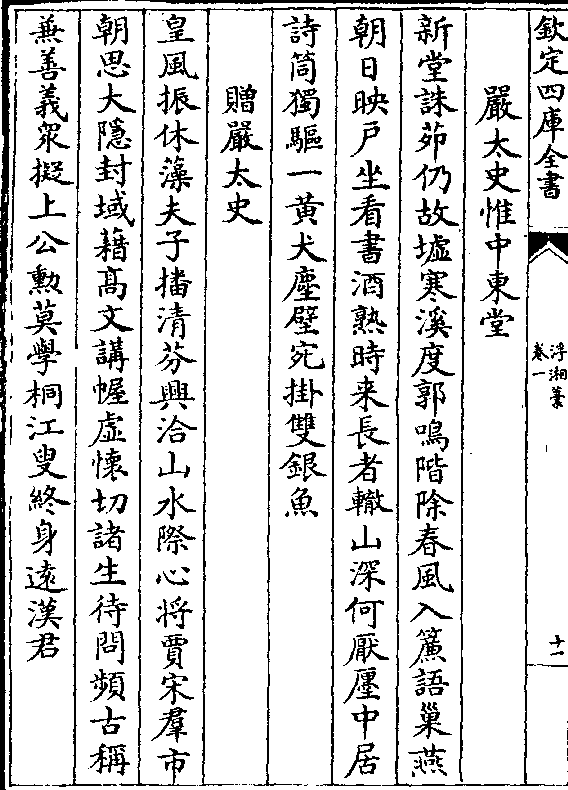 欽定四庫全書
浮湘藁
卷一
十一
嚴太史惟中東堂
新堂誅茆仍故墟寒溪度郭鳴階除春風入簾語巢燕
朝日映戶坐看書酒熟時来長者轍山深何厭廛中居
詩筒獨驅一黃犬塵壁宛掛雙銀魚
贈嚴太史
皇風振休藻夫子播清芬興洽山水際心将賈宋羣市
朝思大隱封域藉高文講幄虛懐切諸生待問頻古稱
兼善義衆擬上公勲莫學桐江叟終身逺漢君